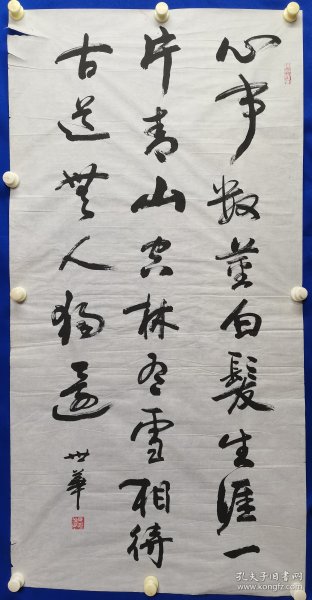 心事数茎白髮生涯一
片青山空林有雪相待
古道無人独還
世華
孔夫子旧书网
www.kongfz.com